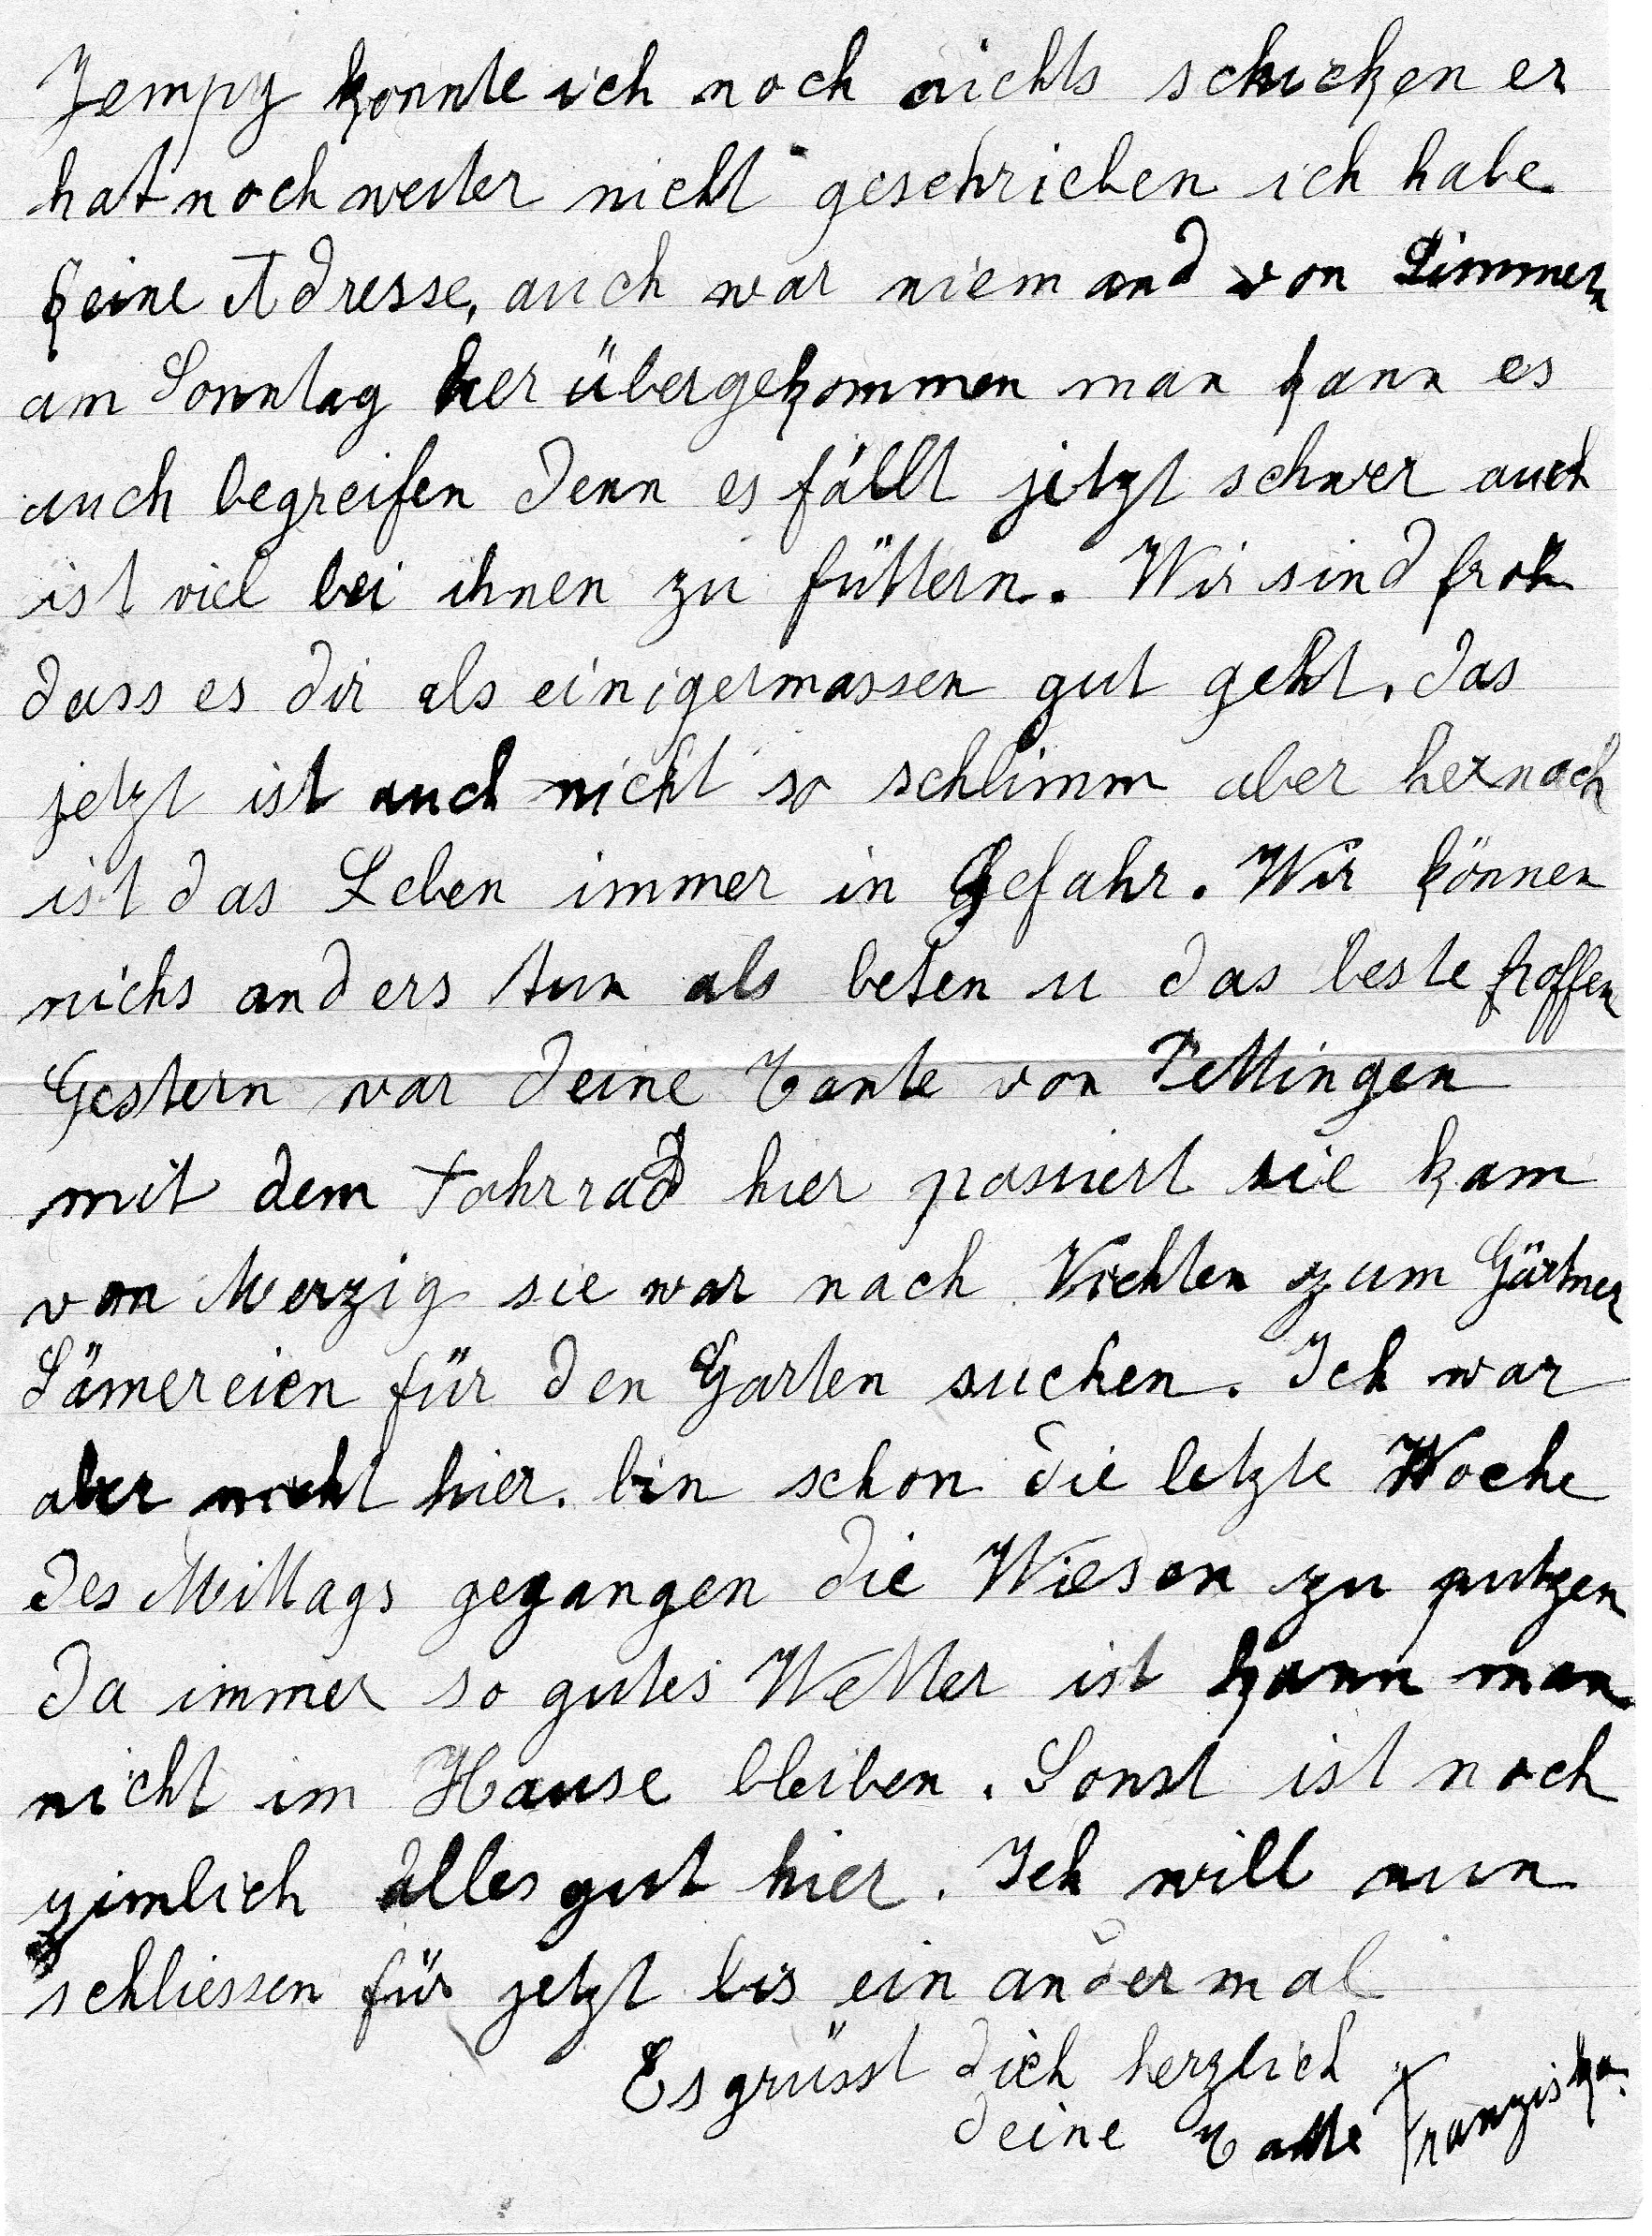 Jempy konnte ich noch nichts schicken er
hat noch weiter nicht geschrieben ich habe
keine Adresse, auch war niemand von Simmern
am Sonntag herübergekommen man kann es
auch begreifen denn es fällt jetzt schwer auch
ist viel bei ihnen zu füttern. Wir sind froh
dass es dir als einigermassen gut geht, das
jetzt ist auch nicht so schlimm aber hernach
ist das Leben immer in Gefahr. Wir können
nichs anders tun als beten u das beste hoffen
Gestern war deine Tante von Pettingen
mit dem Fahrrad hier passiert sie kam
von Merzig sie war nach Vichten zum Gärtner
Sämereien für den Garten suchen. Ich war
aber nicht hier. bin schon die letzte Woche
des Mittags gegangen die Wiesen zu putzen
da immer so gutes Wetter ist kann man
nicht im Hause bleiben. Sonst ist noch
zimlich alles gut hier. Ich will nun
schliessen für jetzt bis ein andermal
Es grüsst dich herzlich
deine Tante Franziska.